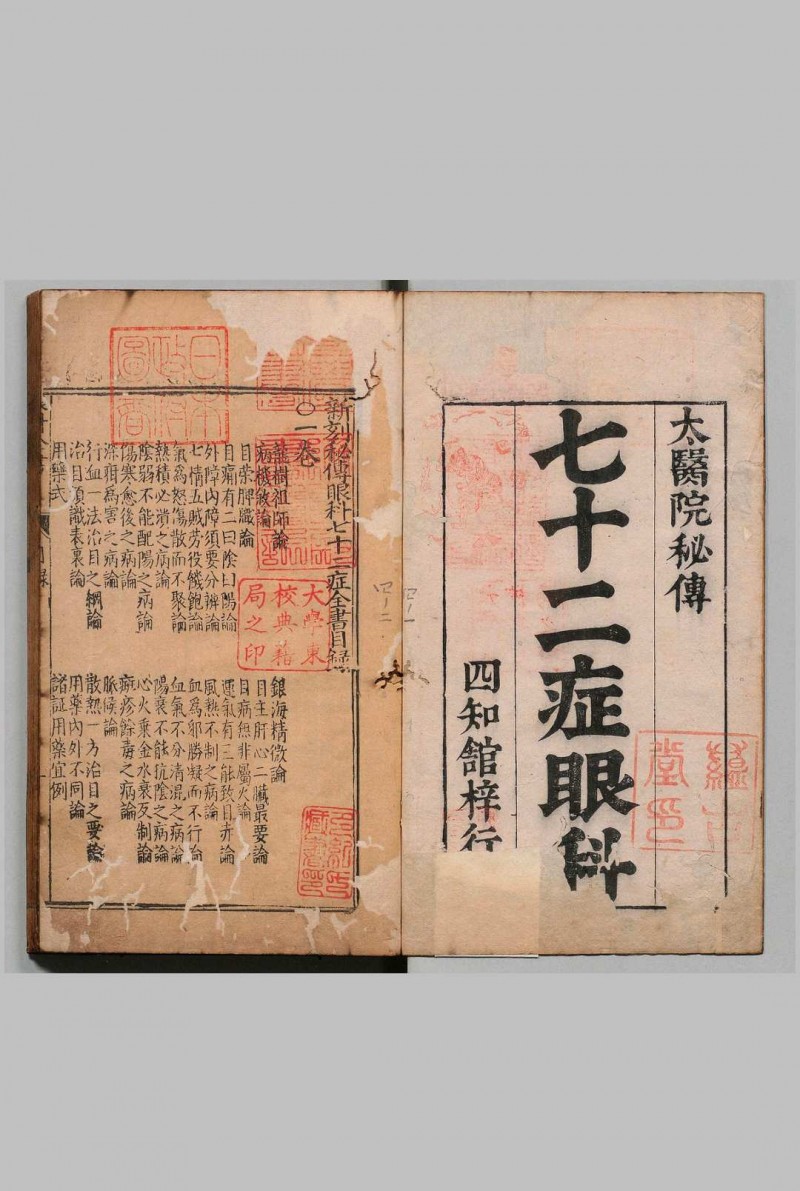 太醫院秘傳
七十二症眼科
四知舘梓行
新刻秘傳眼科七十二症全書目錄
〇一卷
龍樹祖師論
銀海精微論
病機敘論
目主肝心二臟最要論
目榮脾臟論
目病無非屬火論
目痛有二曰陰曰陽論
運氣有三能致目赤論
外障內障須要分辨論
風熱不制之病論
七情五賊劳役饑飽論
血為邪勝凝而不行論
氣為怒傷散而不聚論
血氣不分清混之病論
熱積必潰之病論
陽衰不能抗陰之病論
陰弱不能配陽之病論
心火乘金水衰反制論
傷寒愈後之病論
痲疹餘毒之病論
深疳為害之病論
脈候論
行血一法治目之綱論
散熱一方治目之要論
治目須識表裏論
用藥內外不同論
用藥式
諸証用藥宜例
大學東
校典籍
局之印
日本
政府
圖書